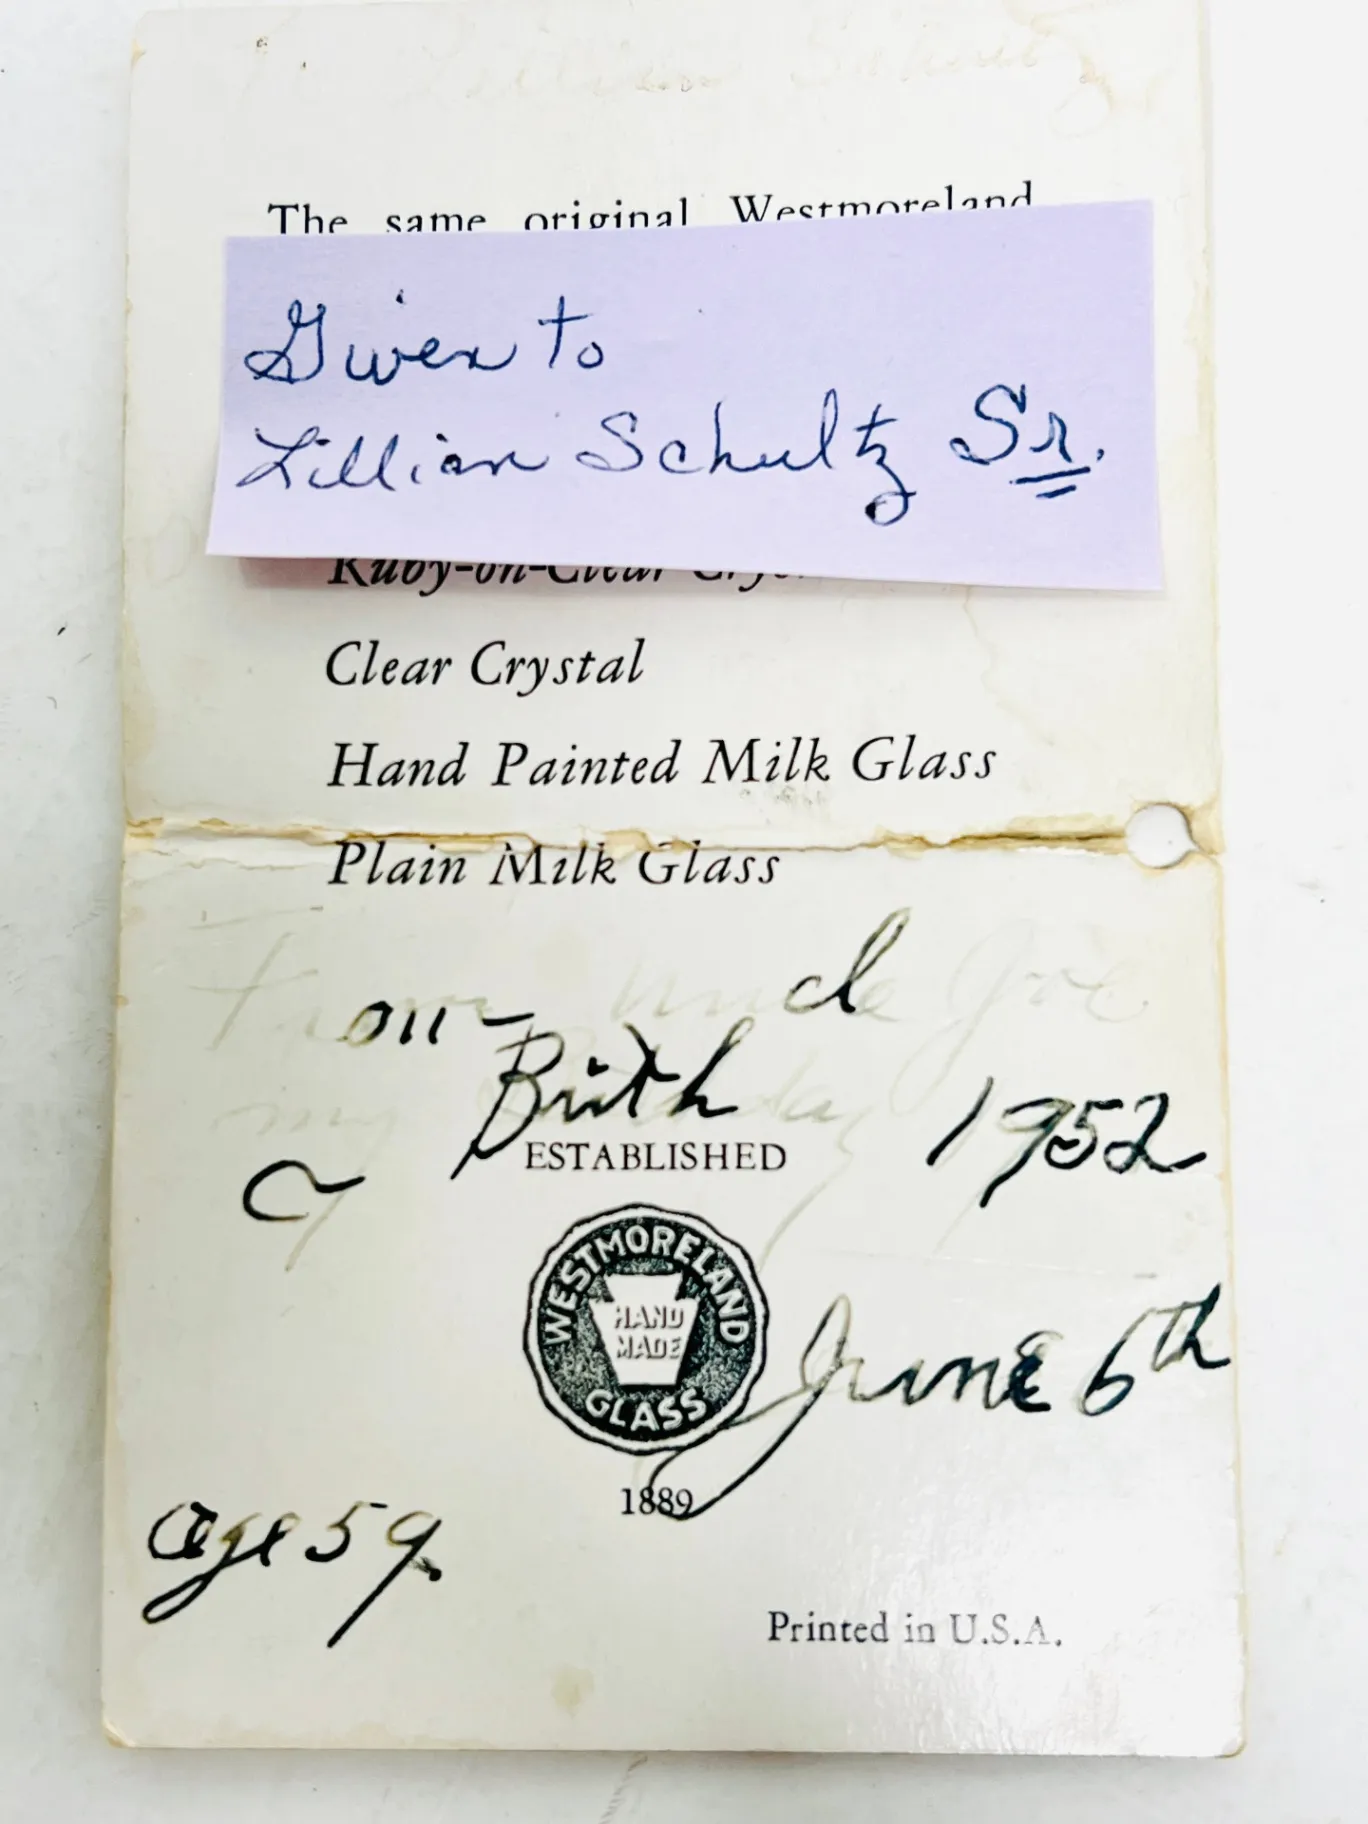 The same original Westmoreland
Given to
Lillian Schultz Sr.
Ruby-on-Clear
Clear Crystal
Hand Painted Milk Glass
Plain Milk Glass
From Uncle Joe
my Birthday 1952
ESTABLISHED
WESTMORELAND
HAND
MADE
GLASS
June 6th
1889
age 59.
Printed in U.S.A.